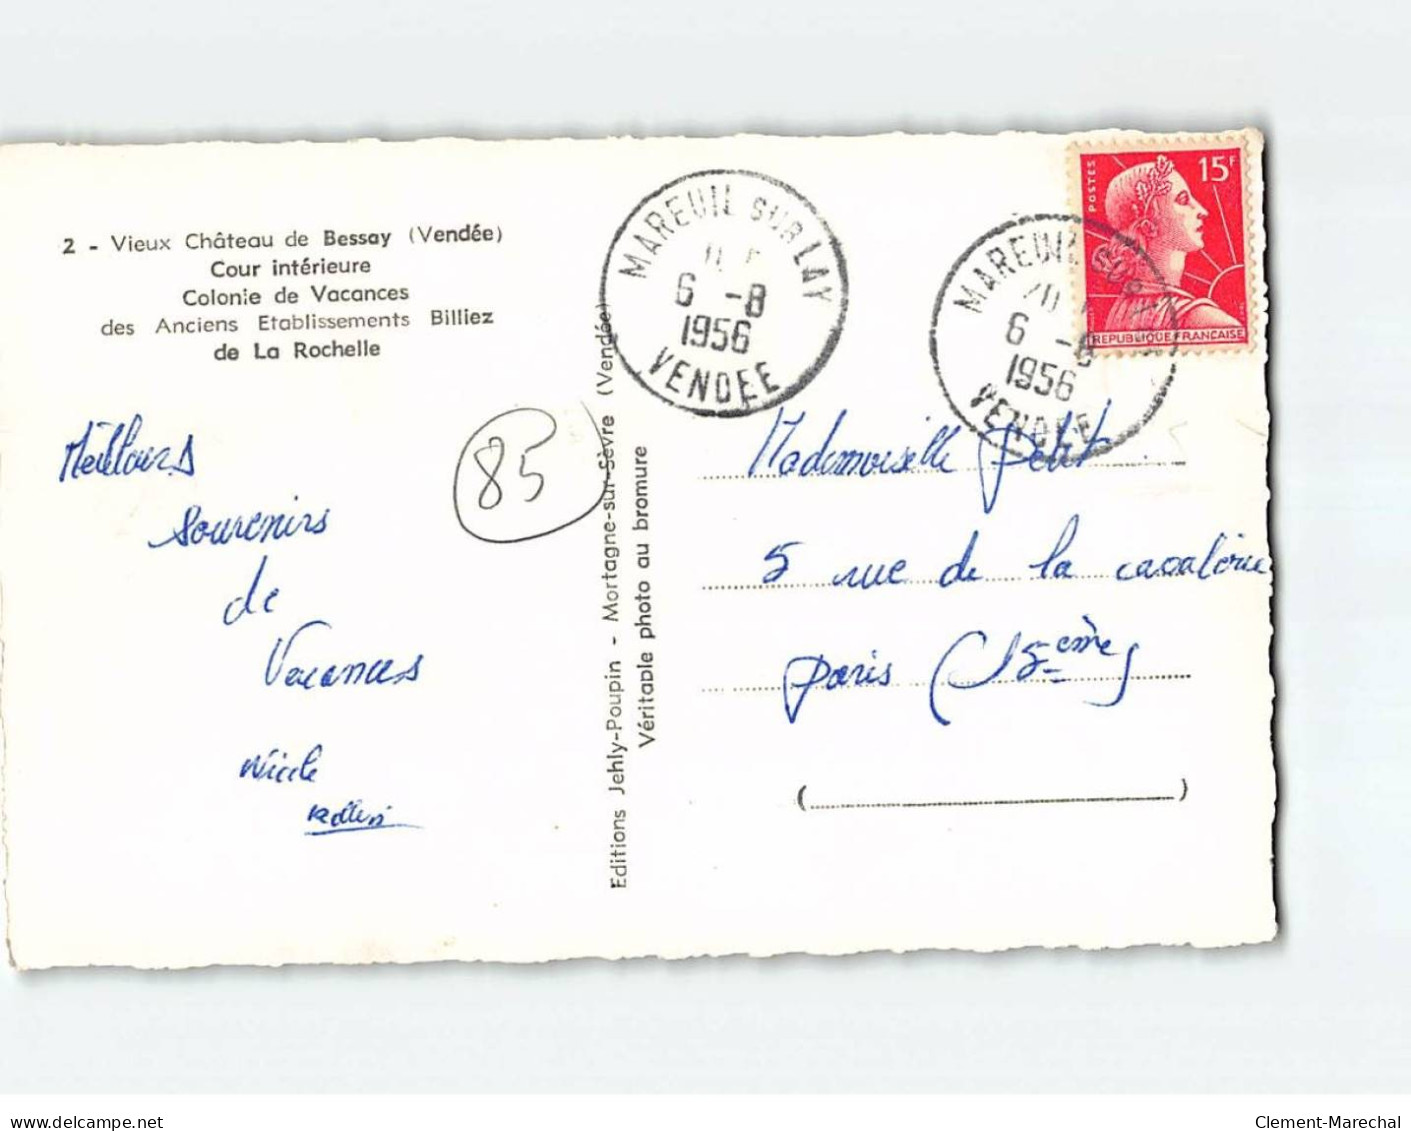 2 - Vieux Château de Bessay (Vendée)
Cour intérieure
Colonie de Vacances
des Anciens Etablissements Billiez
de La Rochelle
Meilleurs
souvenirs
de
Vacances
Nicole
85
Editions Jehly-Poupin - Mortagne-sur-Sèvre (Vendée)
Véritable photo au bromure
MAREUIL SUR LAY
6 -8
1956
VENDEE
MAREUIL SUR LAY
6 -8
1956
VENDEE
POSTES
15F
REPUBLIQUE FRANÇAISE
Mademoiselle Petit
5 rue de la cavalerie
Paris (15ème)
(          )
delcampe.net
Clement-Marechal